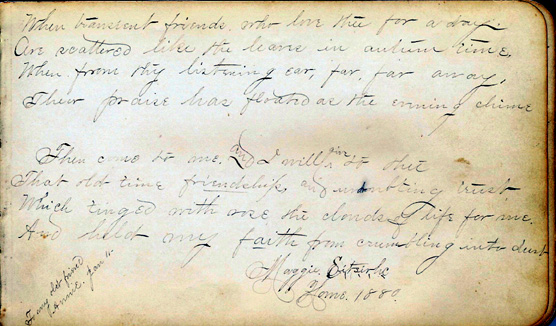 When transient friends who love thee for a day
Are scattered like the leaves in autum time,
When from thy listening ear, far, far away,
Their praise has floated as the evening chime
Then come to me, And I will give to thee
That old time friendship, and trust
Which tinged with rose the clouds of life for me.
And held my faith from crumbling into dust
Maggie
Home. 1880.
To my dear friend
Annie. Jan